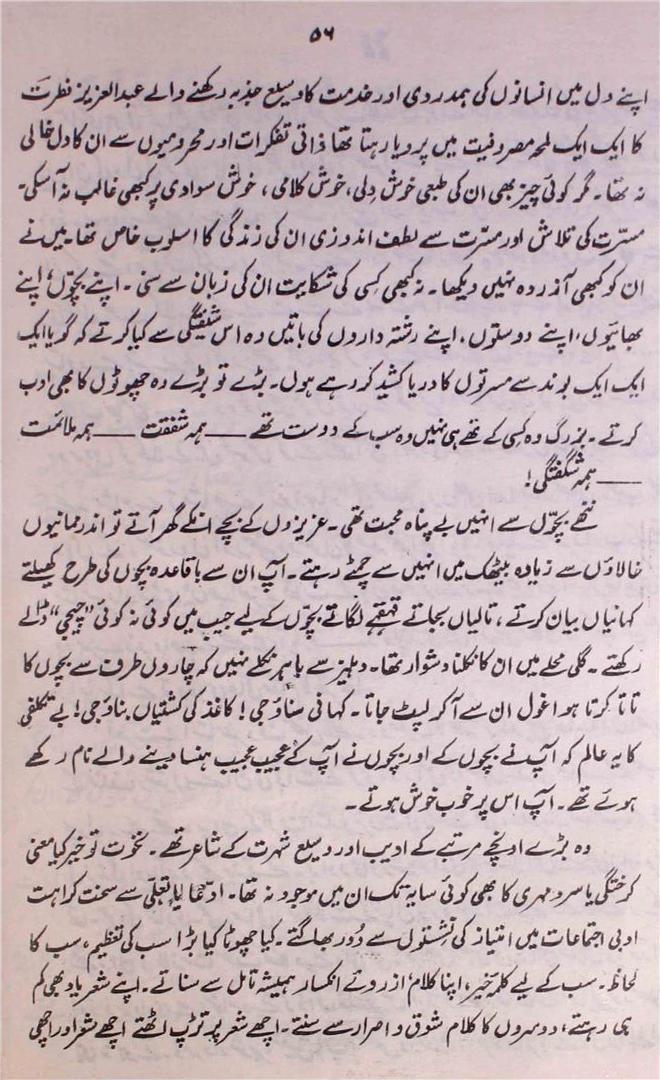 ۵۶
اپنے دل میں انسانوں کی ہمدردی اور خدمت کا وسیع جذبہ رکھنے والے عبدالعزیز فطرت
کا ایک ایک لمحہ مصروفیت میں پرویا رہتا تھا ذاتی تفکرات اور محرومیوں سے ان کا دل خالی
نہ تھا۔ مگر کوئی چیز بھی ان کی طبعی خوش دلی، خوش کلامی، خوش سوادی پر کبھی غالب نہ آسکی۔
مسرّت کی تلاش اور مسرّت سے لطف اندوزی ان کی زندگی کا اسلوب خاص تھا۔ میں نے
ان کو کبھی آزردہ نہیں دیکھا۔ نہ کبھی کسی کی شکایت ان کی زبان سے سنی۔ اپنے بچوّں، اپنے
بھائیوں، اپنے دوستوں، اپنے رشتہ داروں کی باتیں وہ اس شیفتگی سے کیا کرتے کہ گویا ایک
ایک ایک بوند سے مسرتوں کا دریا کشید کر رہے ہوں۔ بڑے تو بڑے وہ چھوٹوں کا بھی ادب
کرتے۔ بزرگ وہ کسی کے تھے ہی نہیں وہ سب کے دوست تھے ــــ ہمہ شفقت ــــ ہمہ ملائمت
ــــ ہمہ شگفتگی!
ننھے بچوّں سے انہیں بے پناہ محبت تھی۔ عزیزوں کے بچے انکے گھر آتے تو اندر ممانیوں
خالاؤں سے زیادہ بیٹھک میں انہیں سے چمٹے رہتے۔ آپ ان سے باقاعدہ بچوں کی طرح کھیلتے
کہانیاں بیان کرتے، تالیاں بجاتے قہقہے لگاتے بچوّں کے لیے جیب میں کوئی نہ کوئی "چیجی" ڈالے
رکھتے۔ گلی محلے میں ان کا نکلنا دشوار تھا۔ دہلیز سے باہر نکلے نہیں کہ چاروں طرف سے بچوں کا
تاتا کرتا ہوا غول ان سے آکر لپٹ جاتا۔ کہانی سناؤ جی! کاغذ کی کشتیاں بناؤ جی! بے تکلفی
کا یہ عالم کہ آپ نے بچوں کے اور بچوں نے آپ کے عجیب عجیب ہنسا دینے والے نام رکھے
ہوئے تھے۔ آپ اس پر خوب خوش ہوتے۔
وہ بڑے اونچے مرتبے کے ادیب اور وسیع شہرت کے شاعر تھے۔ نخوت تو خیر کیا معنی
کرختگی یا سرد مہری کا بھی کوئی سایہ تک ان میں موجود نہ تھا۔ ادعا یا تعلّی سے سخت کراہت
ادبی اجتماعات میں امتیاز کی نشستوں سے دُور بھاگتے۔ کیا چھوٹا کیا بڑا سب کی تعظیم، سب کا
لحاظ۔ سب کے لیے کلمۂ خیر، اپنا کلام، از روئے انکسار ہمیشہ تامل سے سناتے۔ اپنے شعر یاد بھی کم
ہی رہتے، دوسروں کا کلام شوق و اصرار سے سنتے۔ اچھے شعر پر تڑپ اٹھتے اچھے شعر اور اچھی